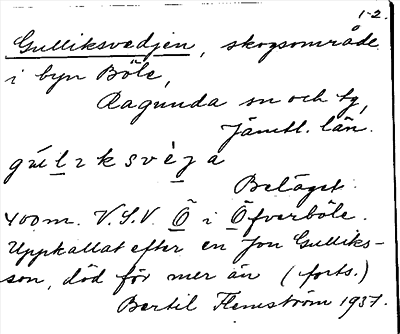 1-2.
Gulliksvedjen, skogsområde
i byn Böle,
Ragunda sn och tg,
Jämtl. län.
gúl̲ıksvèj̲a
Beläget
400 m. V.S.V. Ö i Öfverböle.
Uppkallat efter en Jon Gulliks-
son, död för mer än (forts.)
Bertil Flemström 1937.